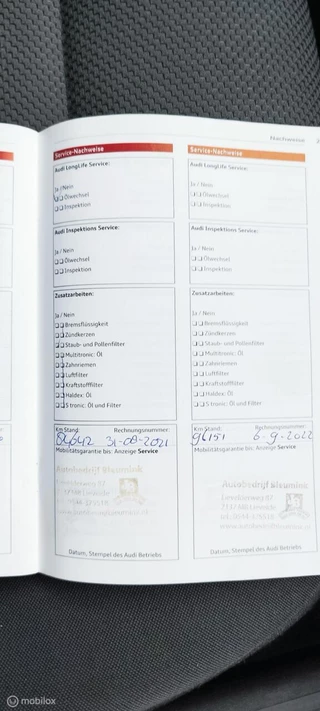 Nachweise
Service-Nachweise
Audi LongLife Service:
Ja / Nein
Ölwechsel
Inspektion
Audi Inspektions Service:
Ja / Nein
Ölwechsel
Inspektion
Zusatzarbeiten:
Ja / Nein
Bremsflüssigkeit
Zündkerzen
Staub- und Pollenfilter
Multitronic: Öl
Zahnriemen
Luftfilter
Kraftstofffilter
Haldex: Öl
S tronic: Öl und Filter
Km Stand: Rechnungsnummer:
84642 31-08-2021
Mobilitätsgarantie bis: Anzeige Service
Autobedrijf Bleumink
Datum, Stempel des Audi Betriebs
Service-Nachweise
Audi LongLife Service:
Ja / Nein
Ölwechsel
Inspektion
Audi Inspektions Service:
Ja / Nein
Ölwechsel
Inspektion
Zusatzarbeiten:
Ja / Nein
Bremsflüssigkeit
Zündkerzen
Staub- und Pollenfilter
Multitronic: Öl
Zahnriemen
Luftfilter
Kraftstofffilter
Haldex: Öl
S tronic: Öl und Filter
Km Stand: Rechnungsnummer:
96151 6-9-2022
Mobilitätsgarantie bis: Anzeige Service
Autobedrijf Bleumink
Datum, Stempel des Audi Betriebs
mobilox